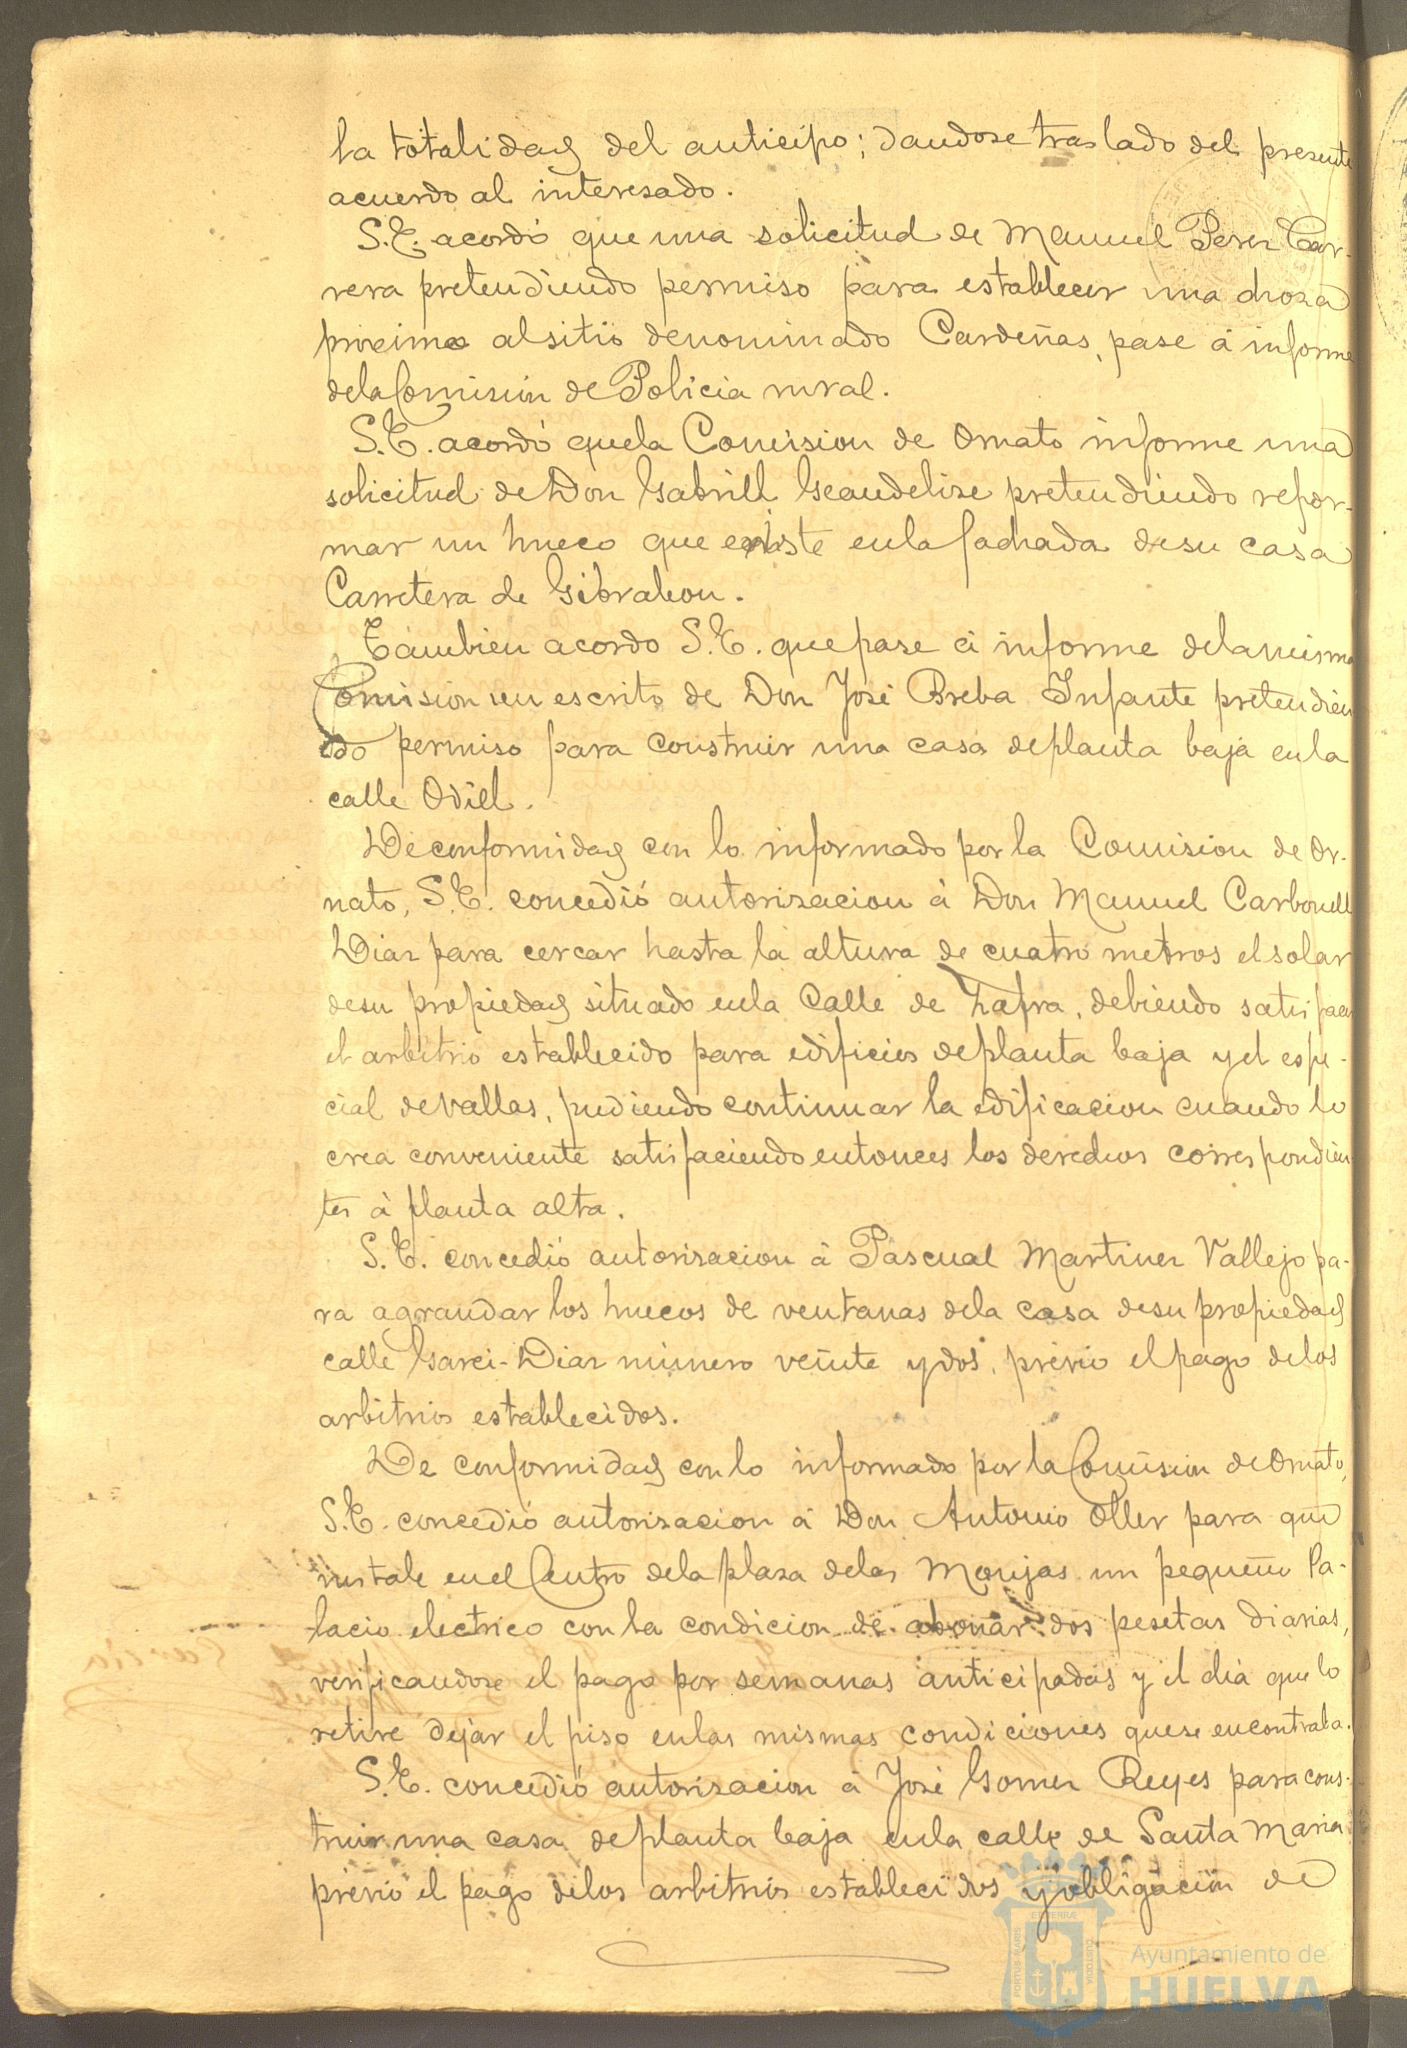 la totalidad del anticipo; dandose traslado del presente
acuerdo al interesado.
S.E. acordó que una solicitud de Manuel Perez Car-
rera pretendiendo permiso para establecer una choza
proximo al sitio denominado Cardeñas, pase á informe
de la Comision de Policia rural.
S.E. acordó que la Comision de Ornato informe una
solicitud de Don Gabriel pretendiendo refor-
mar un hueco que existe en la fachada de su casa
Carretera de Gibraleon.
Tambien acordo S.E. que pase á informe de la misma
Comision un escrito de Don José Breba Infante pretendien
do permiso para construir una casa de planta baja en la
calle Odiel.
De conformidad con lo informado por la Comision de Or-
nato, S.E. concedió autorizacion á Don Manuel Carbonell
Diaz para cercar hasta la altura de cuatro metros el solar
de su propiedad situado en la Calle de Zafra, debiendo satisfacer
el arbitrio establecido para edificios de planta baja y el espe-
cial de vallas, pudiendo continuar la edificacion cuando lo
crea conveniente satisfaciendo entonces los derechos correspondien
tes á planta alta.
S.E. concedió autorizacion á Pascual Martinez Vallejo pa-
ra agrandar los huecos de ventanas de la casa de su propiedad
calle Garci-Diaz número veinte y dos, prévio el pago de los
arbitrios establecidos.
De conformidad con lo informado por la Comision de Ornato,
S.E. concedió autorizacion á Don Antonio Oller para que
instale en el Centro de la plaza de las Monjas un pequeño Pa-
lacio electrico con la condicion de abonar dos pesetas diarias,
verificandose el pago por semanas anticipadas y el dia que lo
retire dejar el piso en las mismas condiciones que se encontraba.
S.E. concedió autorizacion á José Gomez Reyes para cons-
truir una casa de planta baja en la calle de Santa Maria
prévio el pago de los arbitrios establecidos y obligacion de
Ayuntamiento de
HUELVA